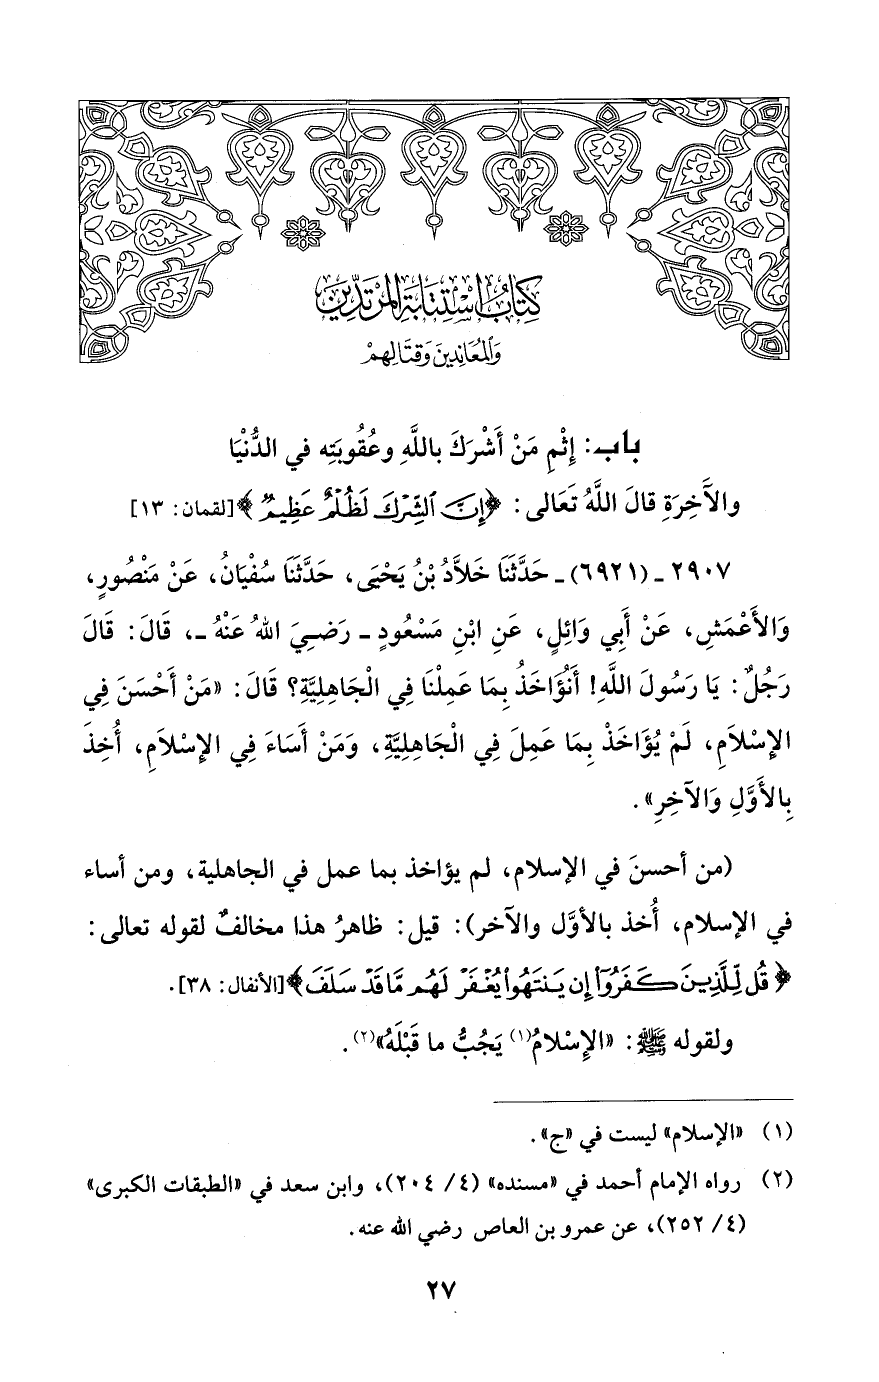 كِتَابُ اسْتِتَابَةِ المُرْتَدِّينَ
وَالمُعَانِدِينَ وَقِتَالِهِمْ
باب: إِثْمِ مَنْ أَشْرَكَ باللَّهِ وعُقُوبَتِه في الدُّنْيَا
والآخِرَةِ قالَ اللَّهُ تَعَالى: ﴿إِنَّ الشِّرْكَ لَظُلْمٌ عَظِيمٌ﴾ [لقمان: ١٣]
٢٩٠٧ ـ (٦٩٢١) ـ حَدَّثَنَا خَلاَّدُ بْنُ يَحْيَى، حَدَّثَنَا سُفْيَانُ، عَنْ مَنْصُورٍ،
وَالأَعْمَشِ، عَنْ أَبِي وَائِلٍ، عَنِ ابْنِ مَسْعُودٍ ـ رَضِيَ اللهُ عَنْهُ ـ، قَالَ: قَالَ
رَجُلٌ: يَا رَسُولَ اللَّهِ! أَنُؤَاخَذُ بِمَا عَمِلْنَا فِي الْجَاهِلِيَّةِ؟ قَالَ: «مَنْ أَحْسَنَ فِي
الإِسْلاَمِ، لَمْ يُؤَاخَذْ بِمَا عَمِلَ فِي الْجَاهِلِيَّةِ، وَمَنْ أَسَاءَ فِي الإِسْلاَمِ، أُخِذَ
بِالأَوَّلِ وَالآخِرِ».
(من أحسنَ في الإسلام، لم يؤاخذ بما عمل في الجاهلية، ومن أساء
في الإسلام، أُخذ بالأوَّل والآخر): قيل: ظاهرُ هذا مخالفٌ لقوله تعالى:
﴿قُل لِّلَّذِينَ كَفَرُوٓا۟ إِن يَنتَهُوا۟ يُغْفَرْ لَهُم مَّا قَدْ سَلَفَ﴾ [الأنفال: ٣٨].
ولقوله ﷺ: «الإِسْلامُ(١) يَجُبُّ ما قَبْلَهُ»(٢).
(١) «الإسلام» ليست في «ج».
(٢) رواه الإمام أحمد في «مسنده» (٤/ ٢٠٤)، وابن سعد في «الطبقات الكبرى»
(٤/ ٢٥٢)، عن عمرو بن العاص رضي الله عنه.
٢٧